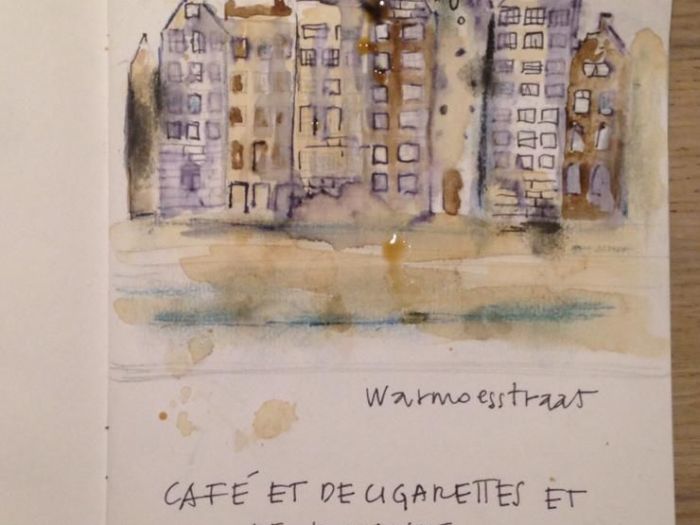 Warmoesstraat
CAFÉ ET DE CIGARETTES ET